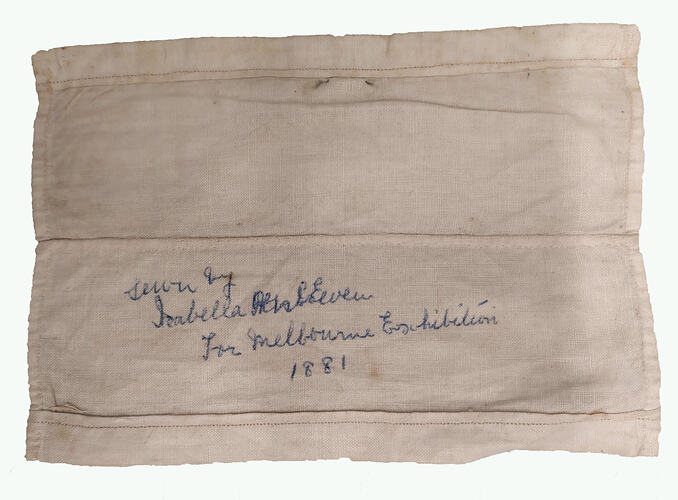 sewn by
Isabella
For Melbourne Exshibition
1881